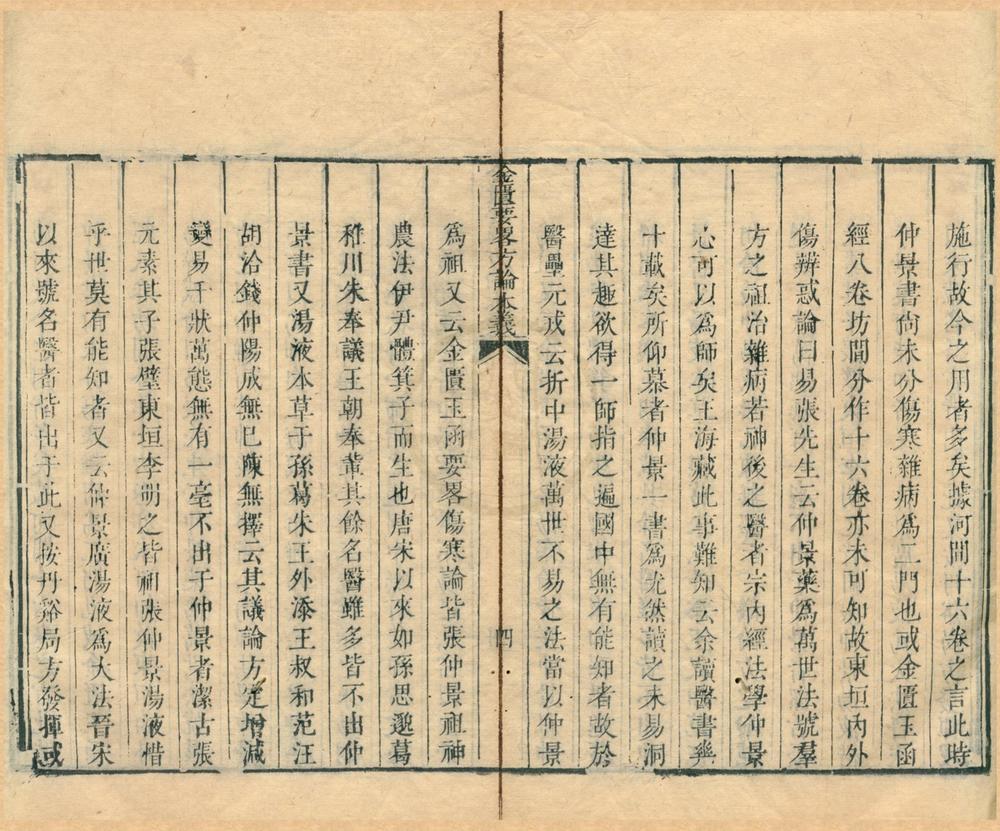 施行故今之用者多矣據河間十六卷之言此時
仲景書尙未分傷寒雜病爲二門也或金匱玉函
經八卷坊間分作十六卷亦未可知故東垣內外
傷辨惑論曰易張先生云仲景藥爲萬世法號羣
方之祖治雜病若神後之醫者宗內經法學仲景
心可以爲師矣王海藏此事難知云余讀醫書幾
十載矣所仰慕者仲景一書爲尤然讀之未易洞
達其趣欲得一師指之遍國中無有能知者故於
醫壘元戎云折中湯液萬世不易之法當以仲景
金匱要畧方論本義
四
爲祖又云金匱玉函要畧傷寒論皆張仲景祖神
農法伊尹體箕子而生也唐宋以來如孫思邈葛
稚川朱奉議王朝奉輩其餘名醫雖多皆不出仲
景書又湯液本草于孫葛朱王外添王叔和范汪
胡洽錢仲陽成無巳陳無擇云其議論方定增減
變易千狀萬態無有一毫不出于仲景者潔古張
元素其子張璧東垣李明之皆祖張仲景湯液惜
乎世莫有能知者又云仲景廣湯液爲大法晉宋
以來號名醫者皆出于此又按丹谿局方發揮或